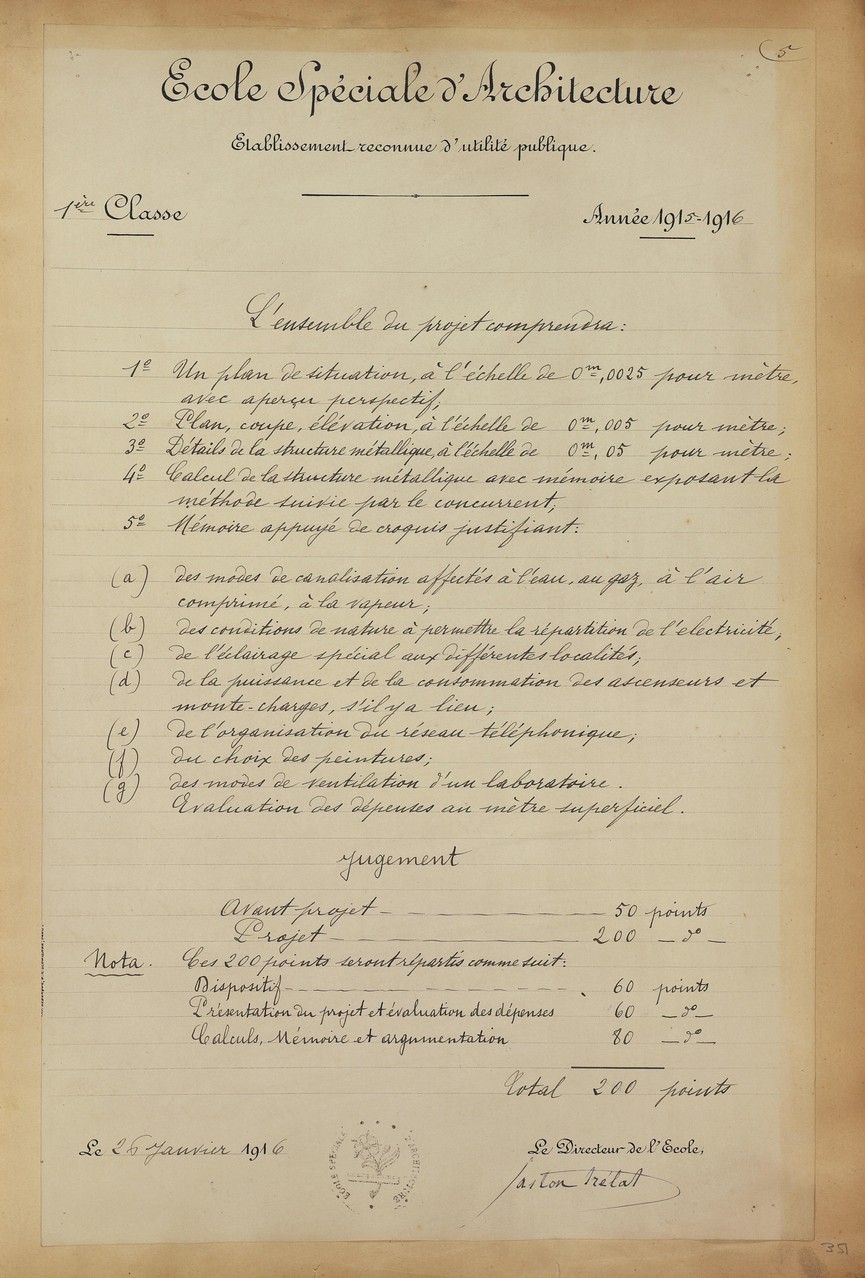 5
Ecole Spéciale d'Architecture
Etablissement reconnue d'utilité publique.
1ère Classe
Année 1915-1916
L'ensemble du projet comprendra:
1º Un plan de situation, à l'échelle de 0m,0025 pour mètre,
avec aperçu perspectif;
2º Plan, coupe, élévation, à l'échelle de 0m,005 pour mètre;
3º Détails de la structure métallique, à l'échelle de 0m,05 pour mètre;
4º Calcul de la structure métallique avec mémoire exposant la
méthode suivie par le concurrent;
5º Mémoire appuyé de croquis justifiant:
(a) des modes de canalisation affectés à l'eau, au gaz, à l'air
comprimé, à la vapeur;
(b) des conditions de nature à permettre la répartition de l'electricité;
(c) de l'éclairage spécial aux différentes localités;
(d) de la puissance et de la consommation des ascenseurs et
monte-charges, s'il y a lieu;
(e) de l'organisation du réseau téléphonique;
(f) du choix des peintures;
(g) des modes de ventilation d'un laboratoire.
Evaluation des dépenses au mètre superficiel.
Jugement
Avant projet - 50 points
Projet - 200 - dº -
Nota. Ces 200 points seront répartis comme suit:
Dispositif - 60 points
Présentation du projet et évaluation des dépenses 60 - dº -
Calculs, Mémoire et argumentation 80 - dº -
Total 200 points
Le 26 Janvier 1916
Le Directeur de l'Ecole,
Gaston Trélat
ECOLE SPECIALE D'ARCHITECTURE
35